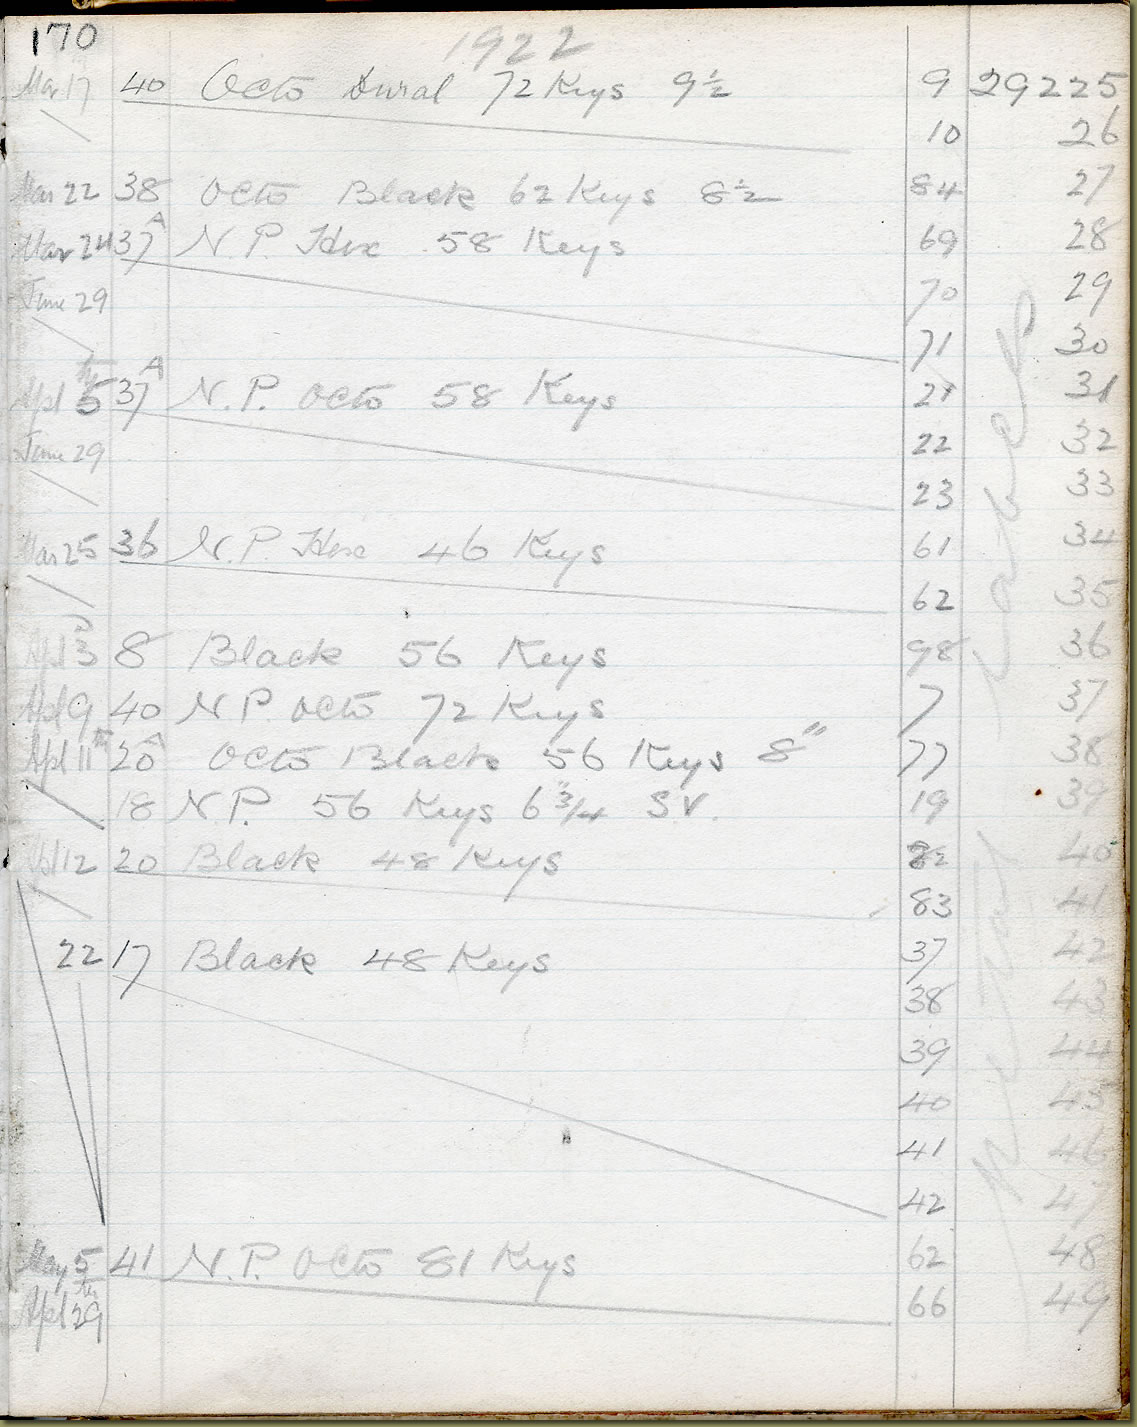 170
1922
Mar 17 40 Octo Dural 72 Keys 9½ 9 29225
10 26
Mar 22 38 Octo Black 62 Keys 8½ 84 27
Mar 24 37A N.P. Hex 58 Keys 69 28
June 29 70 29
71 30
Apl 5th 37A N.P. Octo 58 Keys 21 31
June 29 22 32
23 33
Mar 25 36 N.P. Hex 46 Keys 61 34
62 35
Apl 3 8 Black 56 Keys 98 36
Apl 9 40 N.P. Octo 72 Keys 7 37
Apl 11th 20A Octo Black 56 Keys 8" 77 38
18 N.P. 56 Keys 6"3/4 S.V. 19 39
Apl 12 20 Black 48 Keys 82 40
83 41
22 17 Black 48 Keys 37 42
38 43
39 44
40 45
41 46
42 47
May 5 41 N.P. Octo 81 Keys 62 48
Apl 29th 66 49